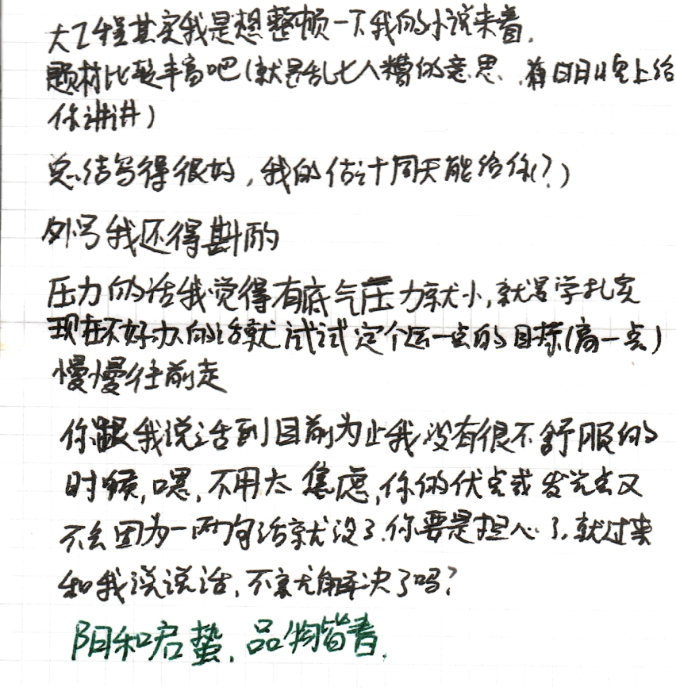 大工程其实我是想整顿一下我的小说来着.
题材比较丰富吧(就是乱七八糟的意思、有日日晚上给
你讲讲)
总结写得很好,我的估计周天能给你(?)
外号我还得斟酌
压力的话我觉得有底气压力就小,就是学扎实
现在不好办的话就试试定个远一点的目标(高一点)
慢慢往前走
你跟我说话到目前为止我没有很不舒服的
时候,嘿,不用太焦虑,你的优点或发光点又
不会因为一两句话就没了.你要是担心了,就过来
和我说说话,不就无解决了吗?
阳和启蛰,品物皆春.